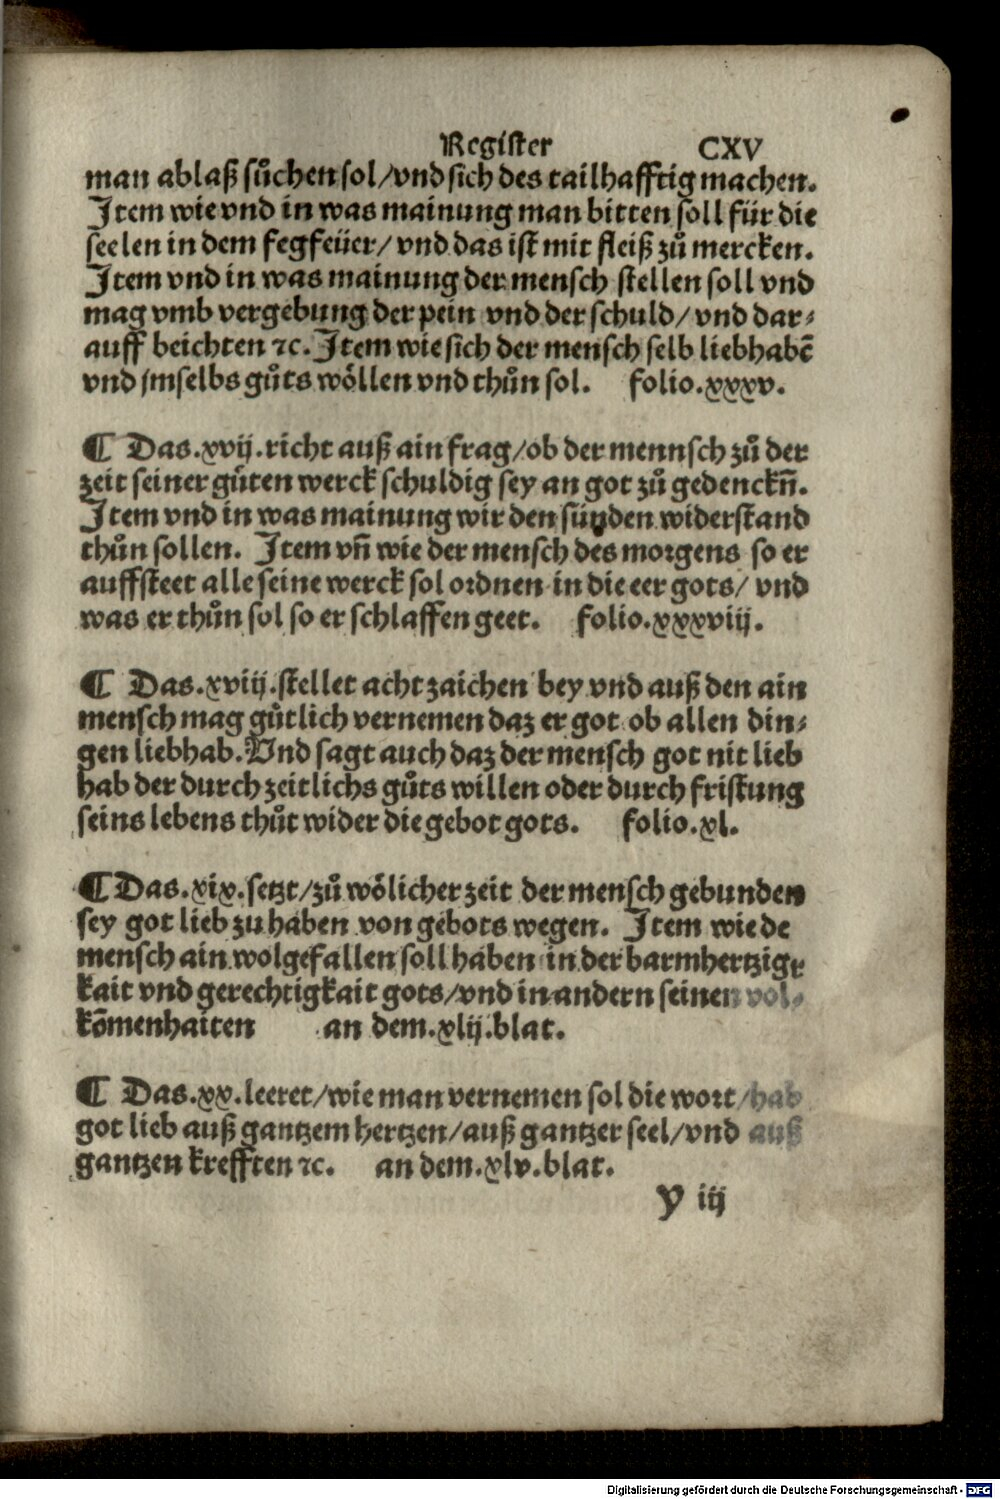 Register CXV
man ablaß sůchen sol/vnd sich des tailhafftig machen.
Item wie vnd in was mainung man bitten soll für die
seelen in dem fegfeüer/ vnd das ist mit fleiß zů mercken.
Item vnd in was mainung der mensch stellen soll vnd
mag vmb vergebung der pein vnd der schuld/ vnd dar⸗
auff beichten ⁊c. Item wie sich der mensch selb liebhabē
vnd jmselbs gůts wöllen vnd thůn sol. folio.xxxv.
¶ Das.xvij.richt auß ain frag/ob der mennsch zů der
zeit seiner gůten werck schuldig sey an got zů gedenckñ.
Item vnd in was mainung wir den sünden widerstand
thůn sollen. Item vñ wie der mensch des morgens so er
auffsteet alle seine werck sol ordnen in die eer gots/ vnd
was er thůn sol so er schlaffen geet. folio.xxxviij.
¶ Das.xviij.stellet acht zaichen bey vnd auß den ain
mensch mag gůtlich vernemen daz er got ob allen din⸗
gen liebhab.Vnd sagt auch daz der mensch got nit lieb
hab der durch zeitlichs gůts willen oder durch fristung
seins lebens thůt wider die gebot gots. folio.xl.
¶ Das.xix.setzt/zů wölicher zeit der mensch gebunden
sey got lieb zu haben von gebots wegen. Item wie de
mensch ain wolgefallen soll haben in der barmhertzig⸗
kait vnd gerechtigkait gots/vnd in andern seinen vol⸗
kōmenhaiten an dem.xlij.blat.
¶ Das.xx.leeret/wie man vernemen sol die wort/hab
got lieb auß gantzem hertzen/auß gantzer seel/vnd auß
gantzen krefften ⁊c. an dem.xlv.blat.
y iij
Digitalisierung gefördert durch die Deutsche Forschungsgemeinschaft - DFG